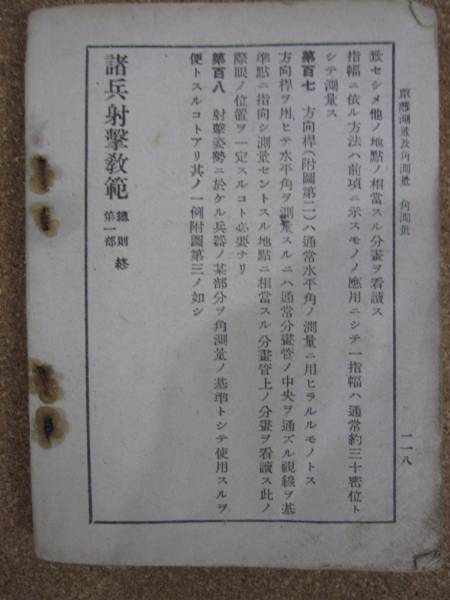 距離測量及角測量　角測量
一一八
致セシメ他ノ地點ノ相當スル分畫ヲ看讀ス
指幅ニ依ル方法ハ前項ニ示スモノノ應用ニシテ一指幅ハ通常約三十密位ト
シテ測量ス
第百七　方向桿(附圖第二)ハ通常水平角ノ測量ニ用ヒラルルモノトス
方向桿ヲ用ヒテ水平角ヲ測量スルニハ通常分畫管ノ中央ヲ通ズル視線ヲ基
準點ニ指向シ測量セントスル地點ニ相當スル分畫管上ノ分畫ヲ看讀ス此ノ
際眼ノ位置ヲ一定スルコト必要ナリ
第百八　射擊姿勢ニ於ケル兵器ノ某部分ヲ角測量ノ基準トシテ使用スルヲ
便トスルコトアリ其ノ一例附圖第三ノ如シ
諸兵射擊敎範　總則
第一部　終